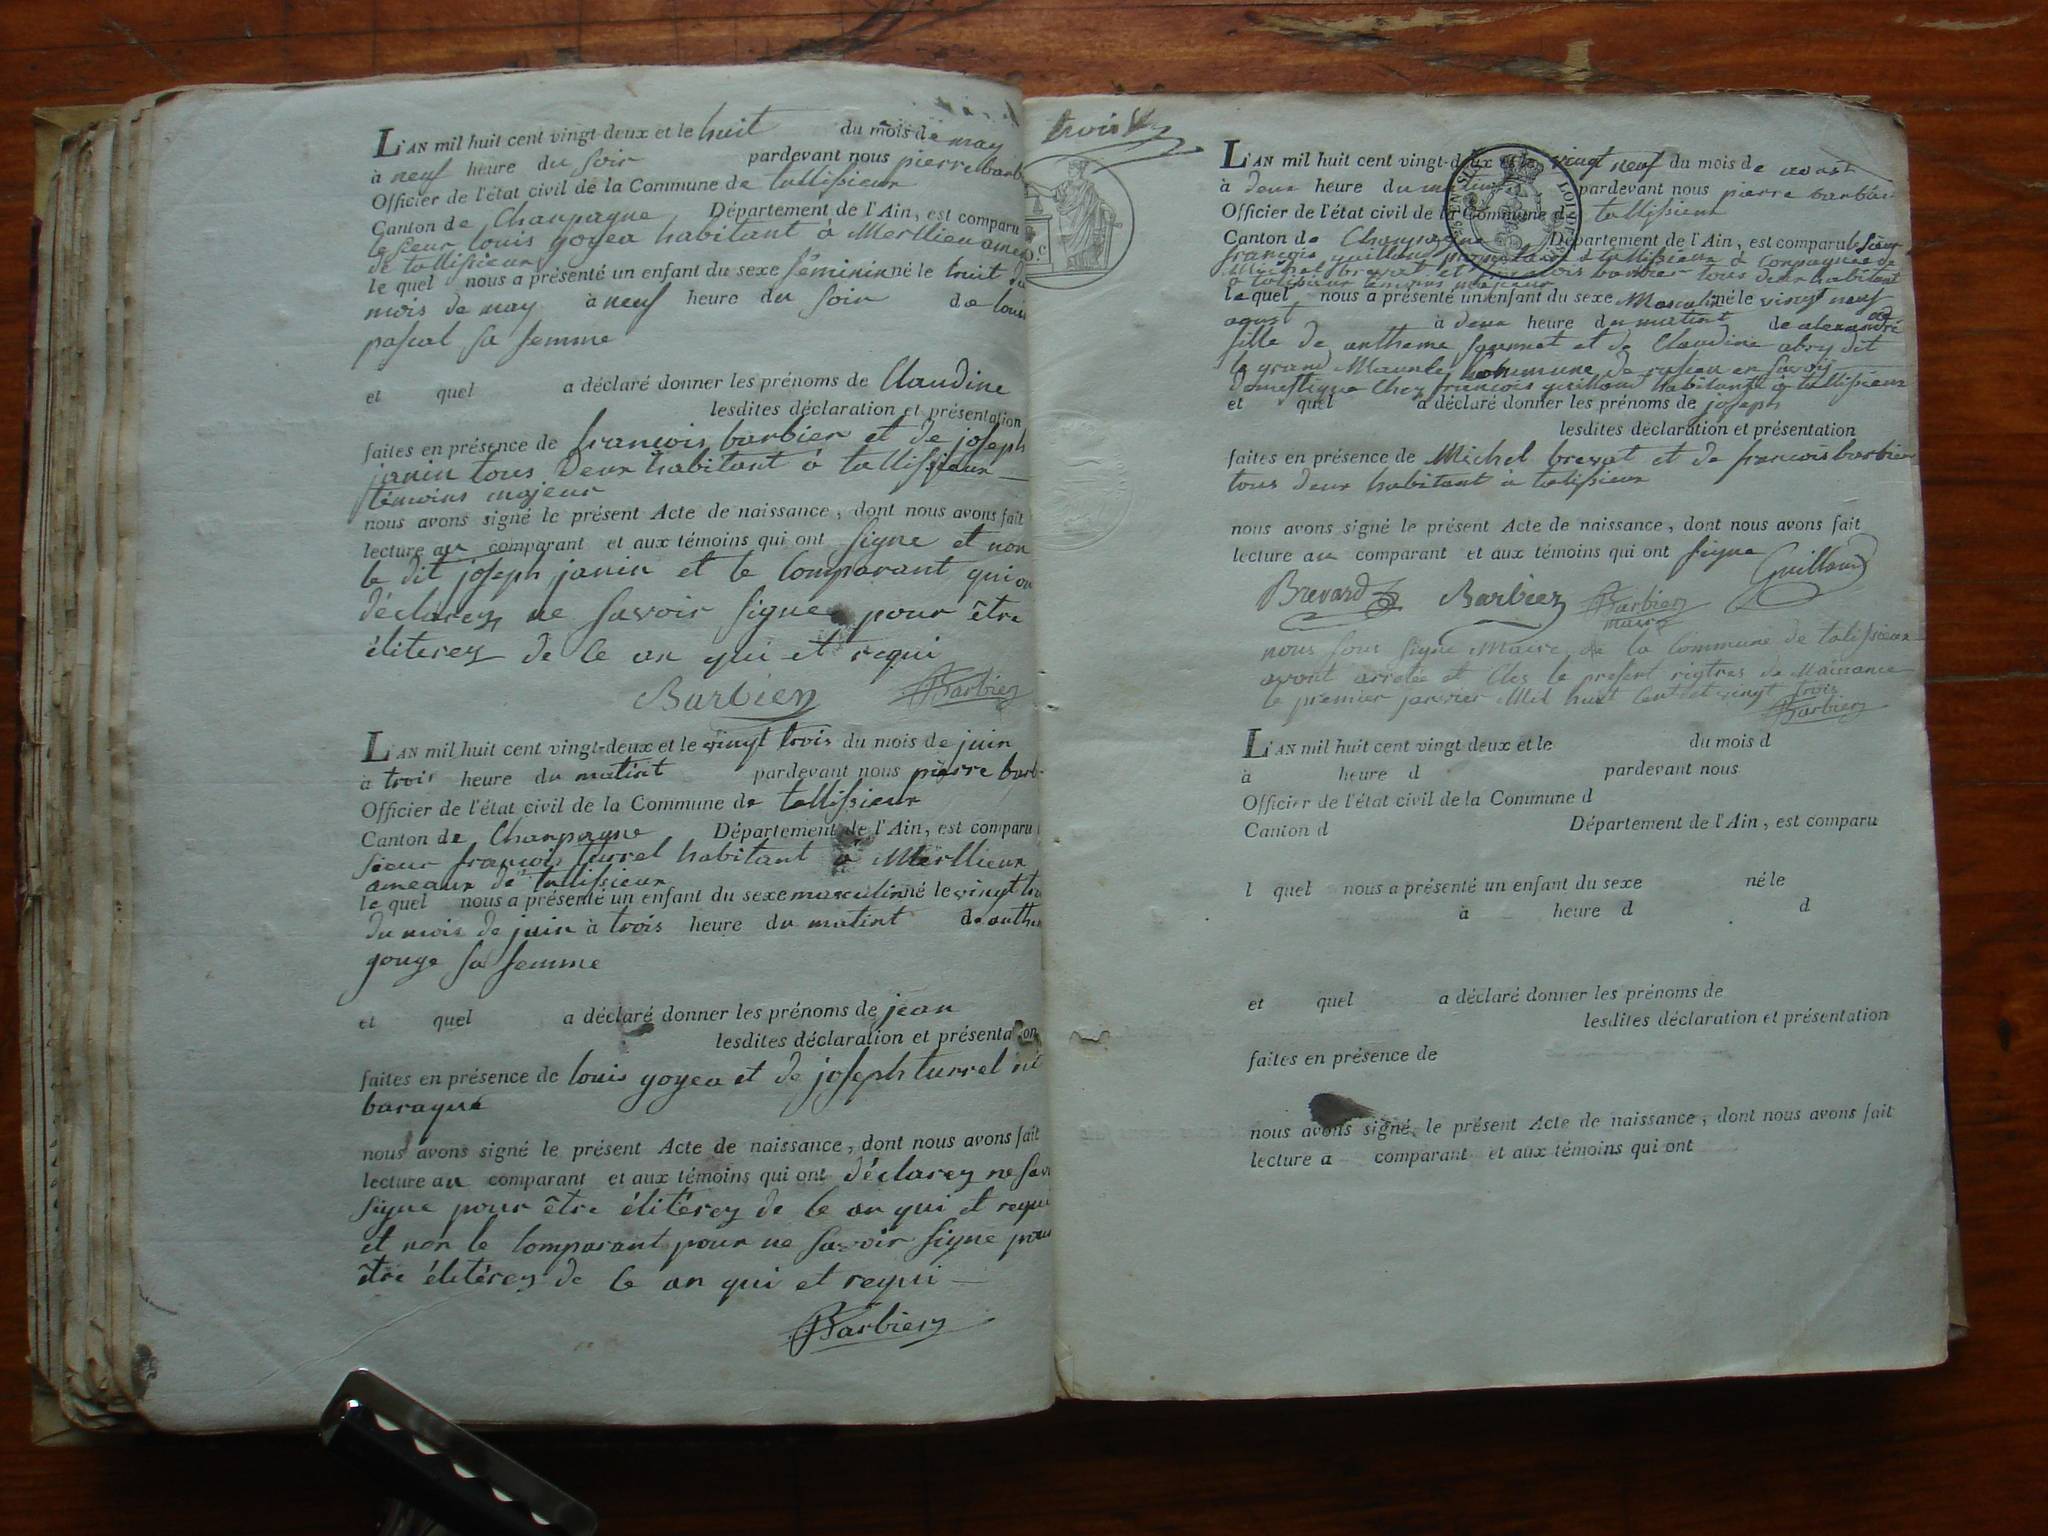 L'AN mil huit cent vingt-deux et le huit du mois de may
à neuf heure du soir pardevant nous pierre barb
Officier de l'état civil de la Commune de tallissieux
Canton de Champagne Département de l'Ain, est comparu
le sieur louis goyea habitant à Merllieu amea
de tallissieux
le quel nous a présenté un enfant du sexe féminin né le huit du
mois de may à neuf heure du soir de louis
pascal sa femme
et quel a déclaré donner les prénoms de Claudine
lesdites déclaration et présentation
faites en présence de francois barbier et de joseph
janin tous deux habitant à tallissieux
témoins majeur
nous avons signé le présent Acte de naissance, dont nous avons fait
lecture au comparant et aux témoins qui ont signe et non
le dit joseph janin et le comparant qui on
déclarez ne savoir signe pour être
éliterez de ce an qui et requi
Barbier Barbier
L'AN mil huit cent vingt-deux et le vingt trois du mois de juin
à trois heure du matint pardevant nous pierre barb
Officier de l'état civil de la Commune de tallissieux
Canton de Champagne Département de l'Ain, est comparu
sieur francois turrel habitant à Merllieux
ameaux de tallissieux
le quel nous a présenté un enfant du sexe masculin né le vingt tr
du mois de juin à trois heure du matint de anthe
gouge sa femme
et quel a déclaré donner les prénoms de jean
lesdites déclaration et présentation
faites en présence de louis goyea et de joseph turrel
baraque
nous avons signé le présent Acte de naissance, dont nous avons fait
lecture au comparant et aux témoins qui ont déclarez ne sav
signe pour être élitérez de ce an qui et requi
et non le comparant pour ne savoir signe pour
être élitérez de ce an qui et requi
Barbier
trois
L'AN mil huit cent vingt-deux et le vingt neuf du mois de avost
à deux heure du matint pardevant nous pierre barbier
Officier de l'état civil de la Commune de tallissieux
Canton de Champagne Département de l'Ain, est comparu le sieur
francois guilloud à tallissieux à Conpagnée de
Michel brevat et francois barbier tous deux habitant
à talissieux temoins majeur
le quel nous a présenté un enfant du sexe Masculin né le vingt neuf
agust à deux heure du matint de alexandri
fille de antheme et de Claudine abry dit
le grand de en Savoij
domestique Chez francois guilloud habitant à tallissieux
et quel a déclaré donner les prénoms de joseph
lesdites déclaration et présentation
faites en présence de Michel brevat et de francois barbier
tous deux habitant a talissieux
nous avons signé le présent Acte de naissance, dont nous avons fait
lecture au comparant et aux témoins qui ont signe Guilloud
Brevard Barbier Barbier
maire
nous sous signe Maire de la Commune de talissieux
avont arretée et Clos le present rigtres de Naissance
le premier janvier Mil huit Cent et vingt trois
Barbier
L'AN mil huit cent vingt-deux et le du mois d
à heure d pardevant nous
Officier de l'état civil de la Commune d
Canton d Département de l'Ain, est comparu
l quel nous a présenté un enfant du sexe né le
à heure d d
et quel a déclaré donner les prénoms de
lesdites déclaration et présentation
faites en présence de
nous avons signé le présent Acte de naissance, dont nous avons fait
lecture a comparant et aux témoins qui ont